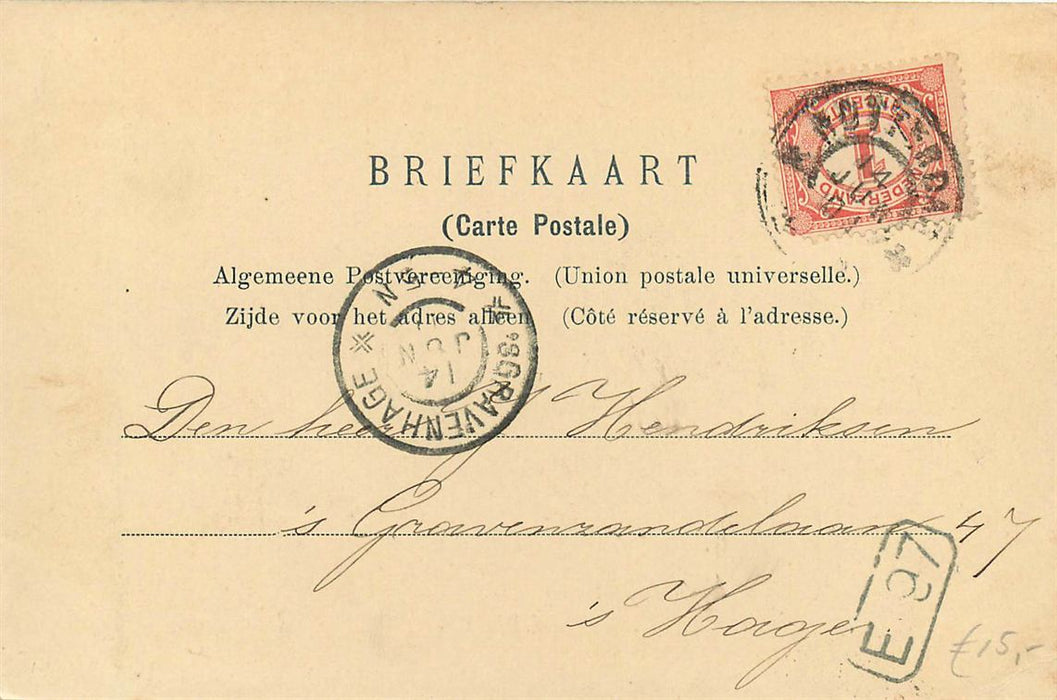 BRIEFKAART
(Carte Postale)
Algemeene Postvereeniging. (Union postale universelle.)
Zijde voor het adres alleen (Côté réservé à l'adresse.)
NEDERLAND
1
14
'SGRAVENHAGE
14
JUN
5 N
Den heer Hendriksen
's Gravenzandelaan 47
's Hage
E 97
£15,-